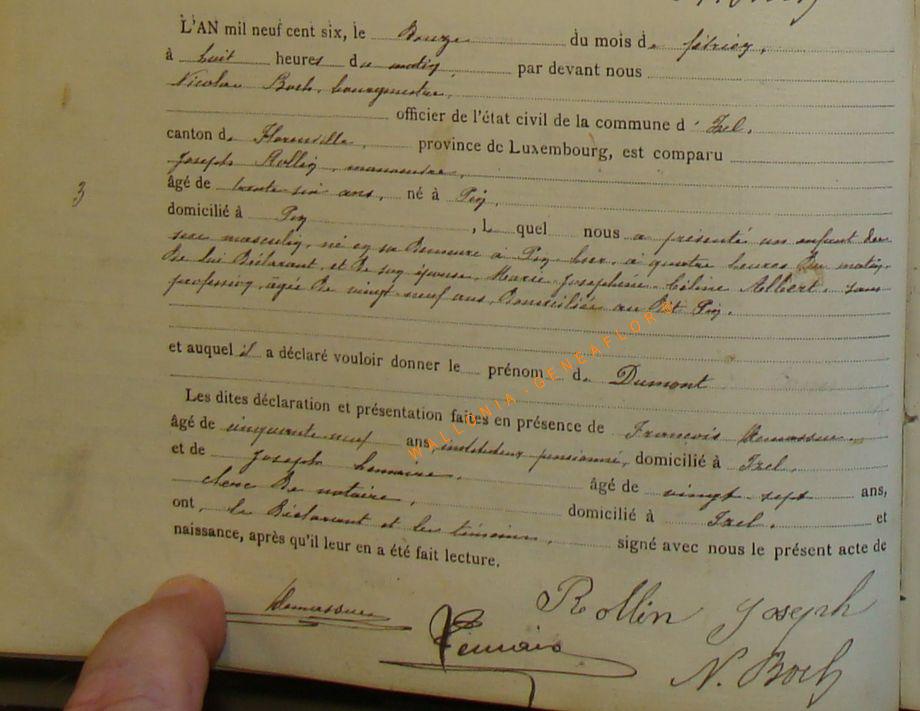 L'AN mil neuf cent six, le Douze du mois de février,
à huit heures du matin, par devant nous
Nicolas Boch, bourgmestre,
officier de l'état civil de la commune d' Izel,
canton de Florenville, province de Luxembourg, est comparu
Joseph Rollin, manoeuvre,
3
âgé de trente six ans, né à Pin,
domicilié à Pin, L quel nous a présenté un enfant du
sexe masculin, né en sa demeure à Pin, hier, à quatre heures du matin,
de lui Déclarant, et de son épouse, Marie-Joséphine-Céline Albert, sans
profession, agée de vingt neuf ans, domiciliés au dit Pin.
et auquel il a déclaré vouloir donner le prénom de Dumont
Les dites déclaration et présentation faites en présence de François
âgé de cinquante neuf ans, instituteur pensionné, domicilié à Izel,
et de Joseph Lemaire, âgé de vingt sept ans,
clerc de notaire, domicilié à Izel, et
ont, le Déclarant et les témoins, signé avec nous le présent acte de
naissance, après qu'il leur en a été fait lecture.
Rollin Joseph
Lemaire
N. Boch
WALLONIA - GENEAFLORE